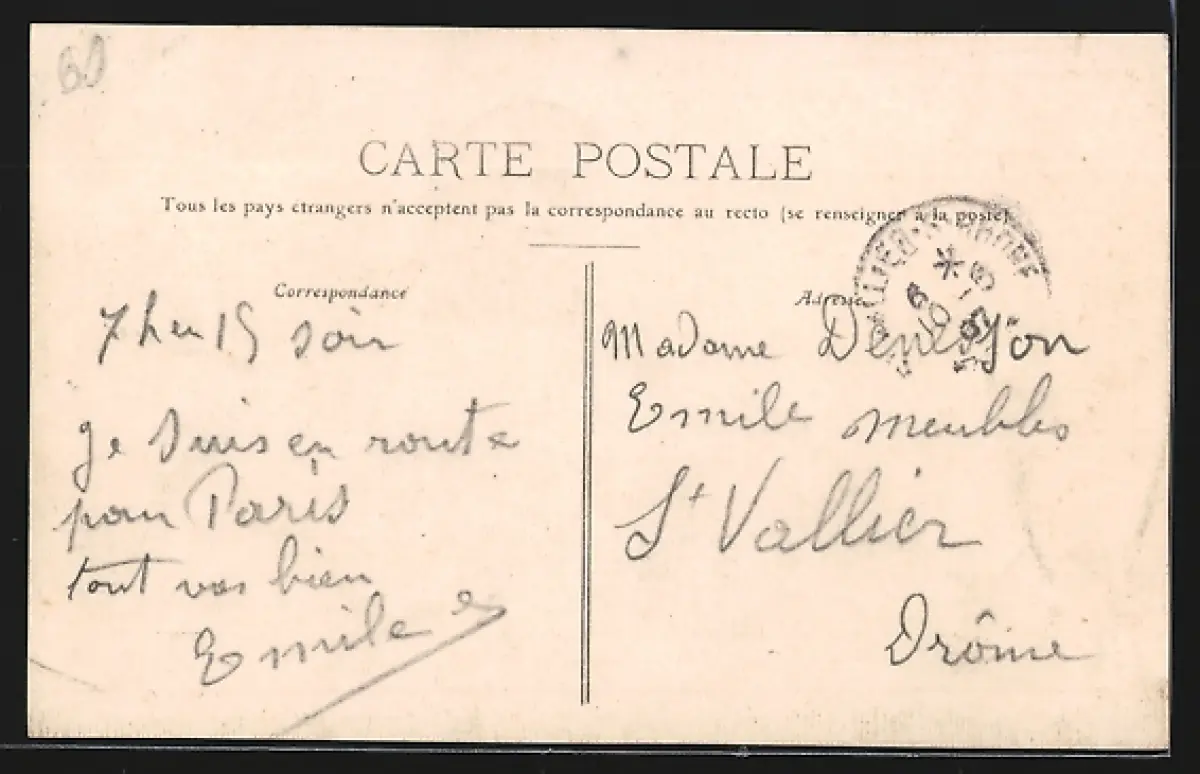 CARTE POSTALE
Tous les pays etrangers n'acceptent pas la correspondance au recto (se renseigner à la poste)
Correspondance
7 h en 15 soir
Je suis en route
pour Paris
tout vas bien
Emile
Adresse
Madame
Emile meubles
St Vallier
Drôme